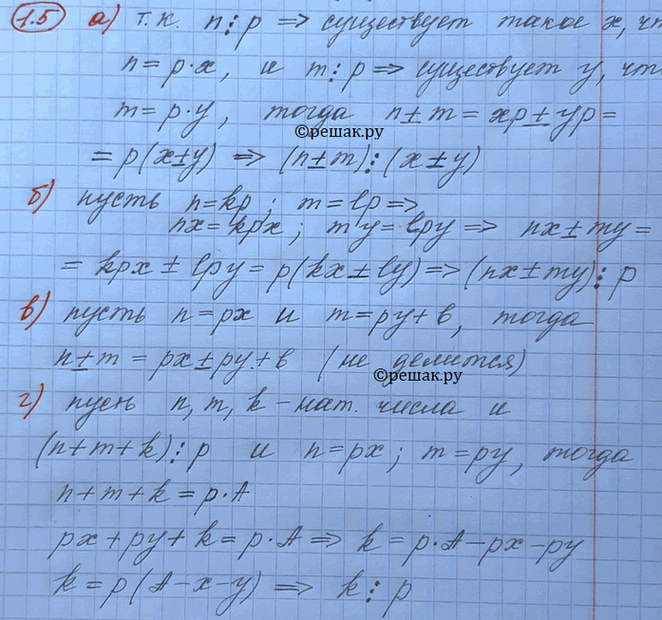 1.5 а) т.к. n⋮p => существует такое x, чт
n = p·x, и m⋮p => существует y, что
m = p·y, тогда n ± m = xp ± yp =
©решак.ру
= p(x±y) => (n±m)⋮(x±y)
б) пусть n=kp; m=lp =>
nx = kpx; my = lpy => nx ± my =
= kpx ± lpy = p(kx ± ly) => (nx ± my)⋮p
в) пусть n = px и m = py + в, тогда
n ± m = px ± py + в (не делится)
©решак.ру
г) пусть n, m, k - нат. числа и
(n+m+k)⋮p и n = px; m = py, тогда
n + m + k = p·A
px + py + k = p·A => k = p·A - px - py
k = p(A - x - y) => k⋮p